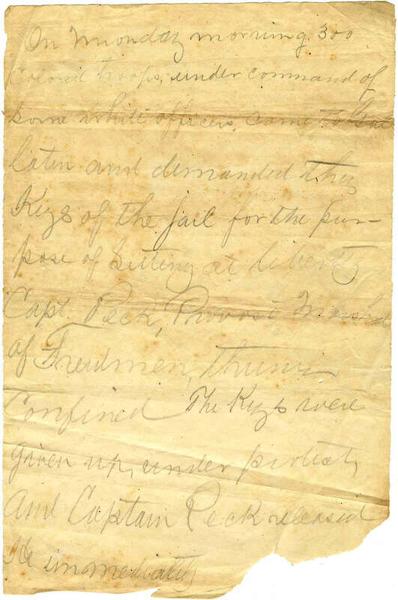 On Monday morning 300
Colored troops, under command of
some white officers, came to Gal
latin and demanded the
Keys of the jail for the pur-
pose of setting at liberty
Capt. Peck, Provost Marshal
of Freedmen,
Confined The Keys were
given up, under protest,
and Captain Peck released
immediately